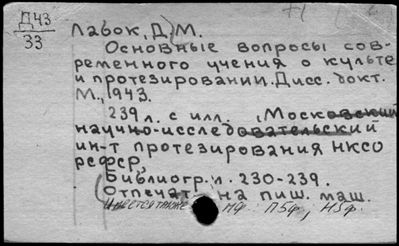 Д43
33
Лабок, Д. М.
Основные вопросы сов-
ременного учения о культе
и протезировании. Дисс. докт.
М., 1943.
239 л. с илл. (Московский
научно-исследовательский
ин-т протезирования НКСО
РСФСР)
Библиогр. л. 230-239.
Отпечат. на пиш. маш.
Имеется также МФ. П5ф, Н5ф.